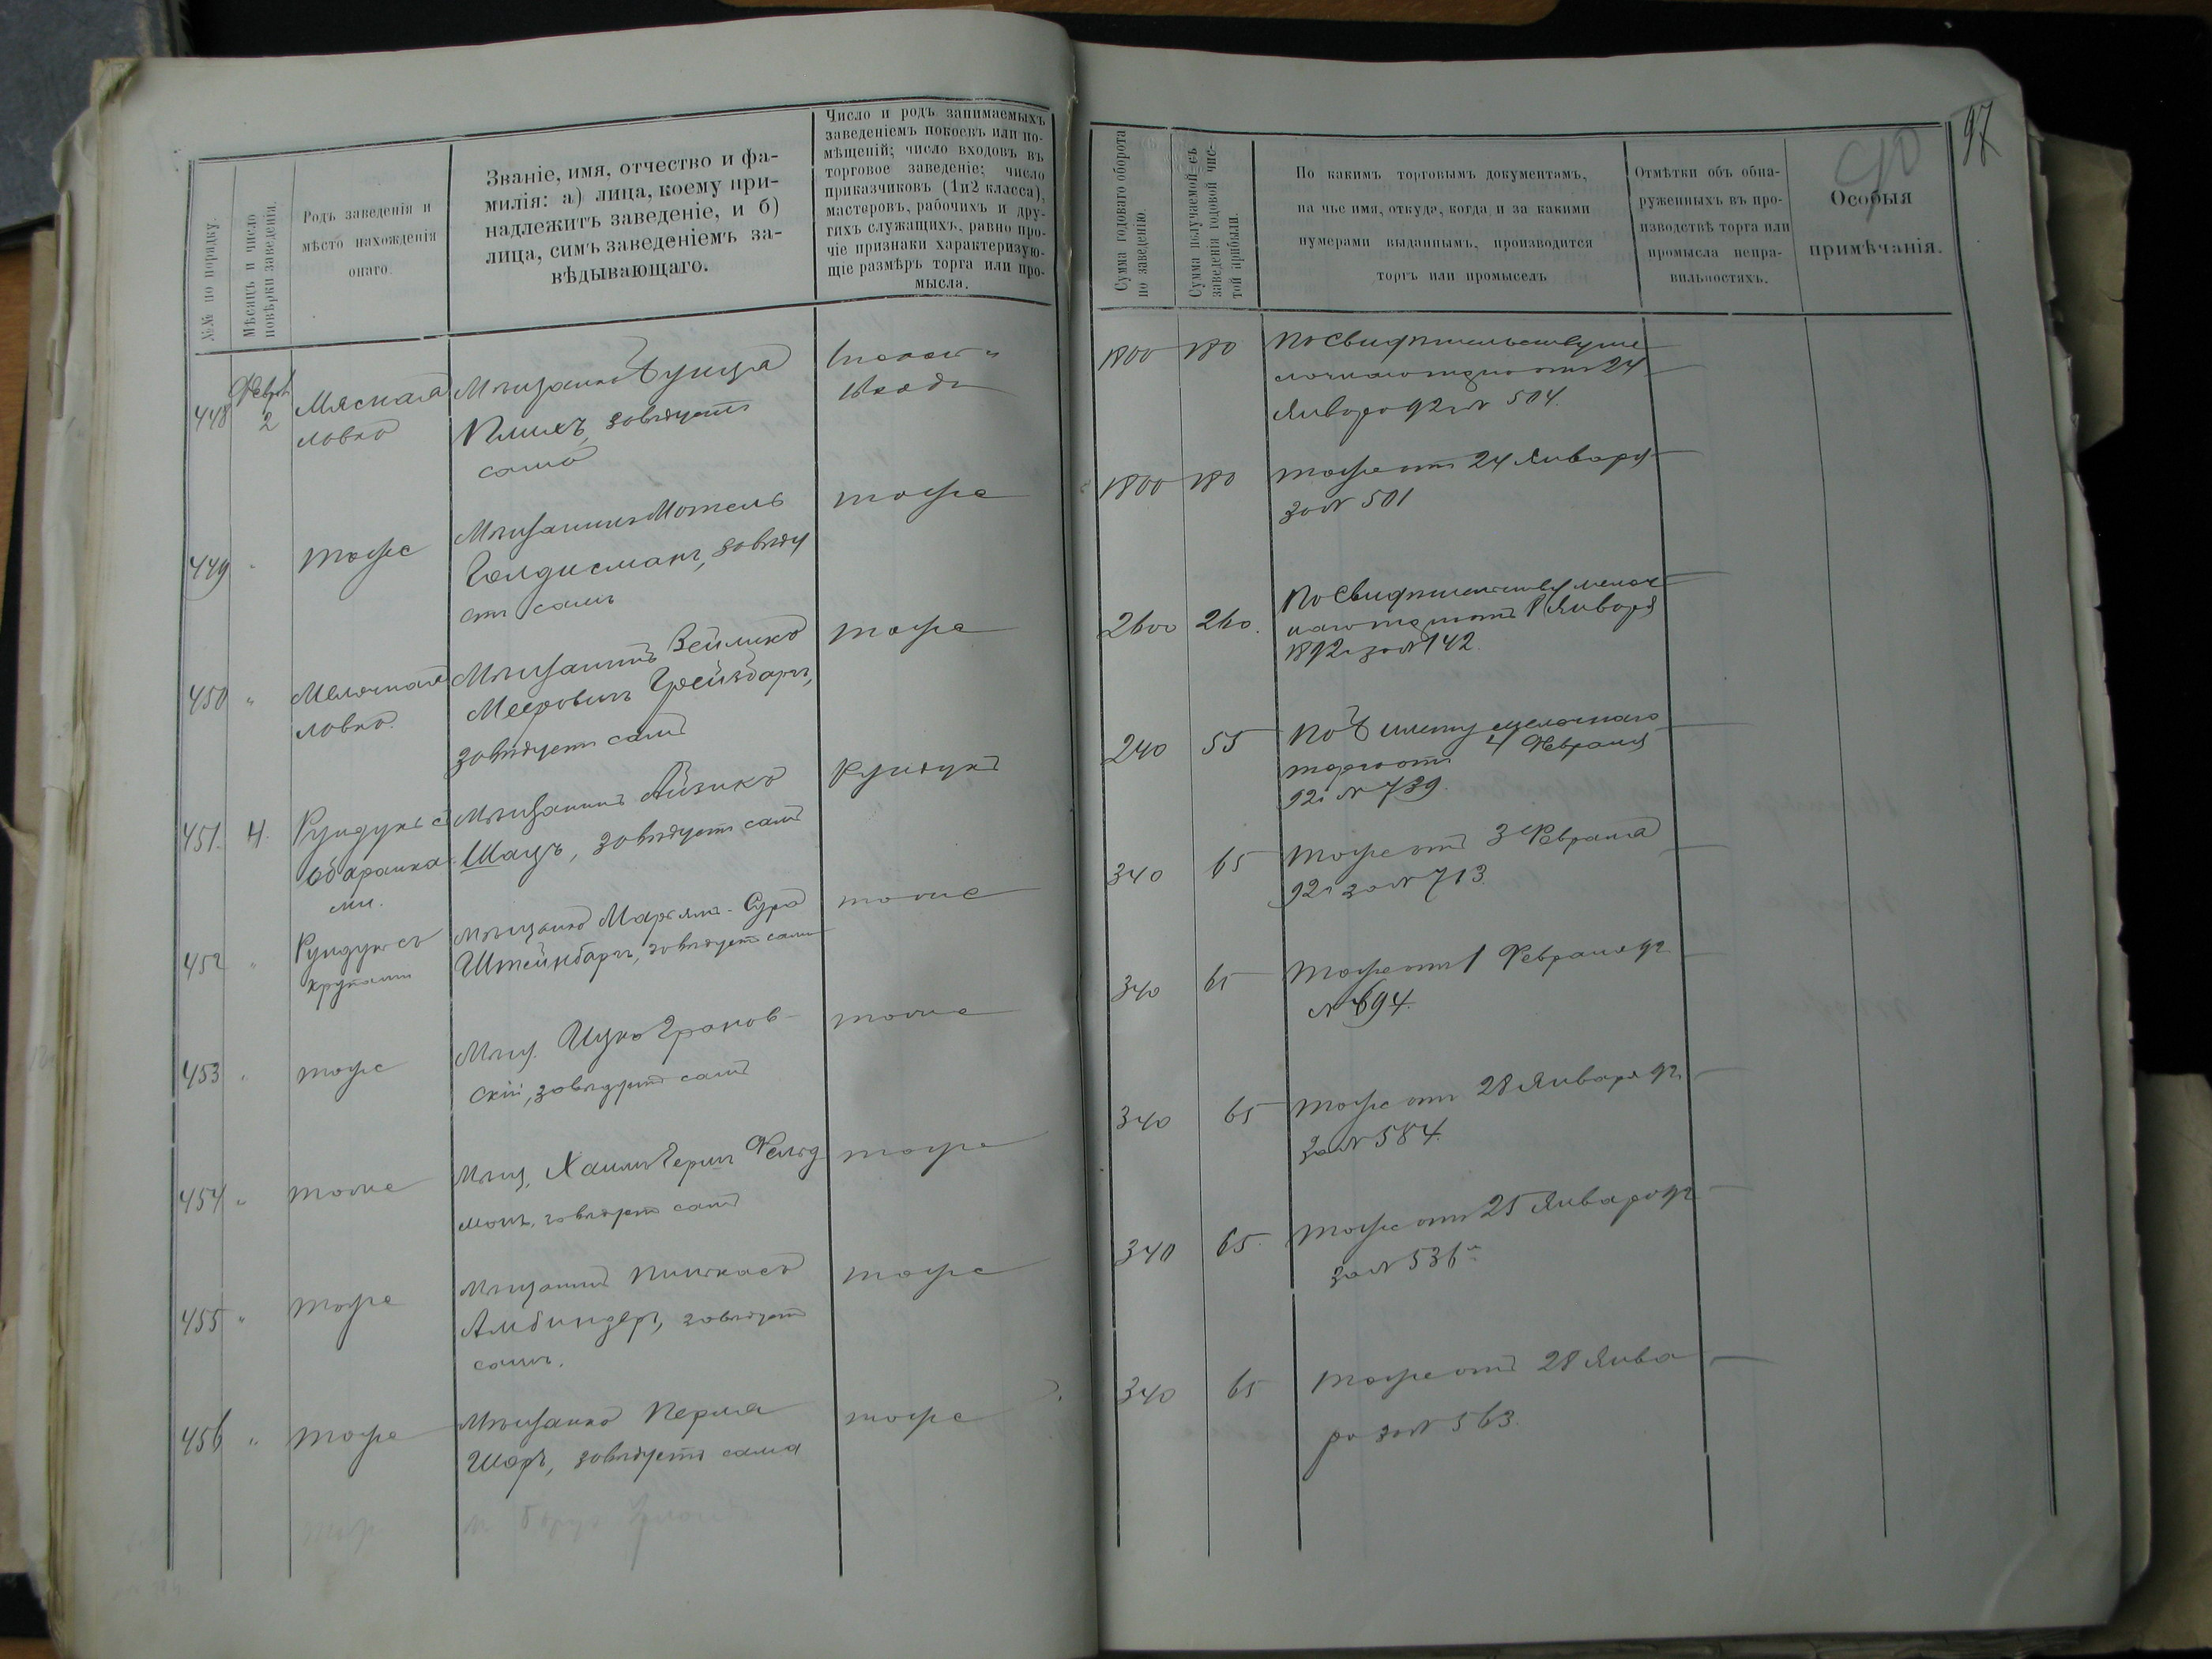 97
90
№№ по порядку.
Мѣсяцъ и число
повѣрки заведенія.
Родъ заведенія и
мѣсто нахожденія
онаго.
Званіе, имя, отчество и фа-
милія: а) лица, коему при-
надлежитъ заведеніе, и б)
лица, симъ заведеніемъ за-
вѣдывающаго.
Число и родъ занимаемыхъ
заведеніемъ покоевъ или по-
мѣщеній; число входовъ въ
торговое заведеніе; число
приказчиковъ (1 и 2 класса),
мастеровъ, рабочихъ и дру-
гихъ служащихъ, равно про-
чіе признаки характеризую-
щіе размѣръ торга или про-
мысла.
Сумма годоваго оборота
по заведенію.
Сумма получаемой съ
заведенія годовой чис-
той прибыли.
По какимъ торговымъ документамъ,
на чье имя, откуда, когда и за какими
нумерами выданнымъ, производится
торгъ или промыселъ
Отмѣтки объ обна-
руженныхъ въ про-
изводствѣ торга или
промысла непра-
вильностяхъ.
Особыя
примѣчанія.
448 2 Мясная Мѣщанка
лавка завѣдуетъ
сама
1800 180 По свидѣтельству ме
лочнаго торга отъ 24
Января 92 г № 504.
449 " тоже Мѣщанинъ Мотель
завѣду
етъ самъ
тоже
1800 180 тоже отъ 24 Января
за № 501
450 " Мелочная Мѣщанинъ
лавка. Мееровичъ
завѣдуетъ самъ
тоже
2600 260. По свидѣтельству мелоч
наго торга отъ Января
1892 г за № 142.
451. 4. Рундукъ съ Мѣщанинъ Айзикъ
баранка Шацъ, завѣдуетъ самъ
ми.
Рундукъ
240 55 По билету мелочнаго
торга отъ 4 Февраля
92 г № 739.
452 " Рундукъ съ Мѣщанка Сура
крупами Штейнбаргъ, завѣдуетъ сама
тоже
340 65 Тоже отъ 3 Февраля
92 г за № 713.
453 " тоже Мѣщ. Ицко Гранов-
скій, завѣдуетъ самъ
тоже
340 65 Тоже отъ 1 Февраля 92
№ 694.
454 " тоже Мѣщ. Хаимъ Гершъ Фельд
манъ, завѣдуетъ самъ
тоже
340 65 тоже отъ 28 Января 92
за № 584.
455 " тоже Мѣщанинъ Пинкасъ
Амбиндеръ, завѣдуетъ
самъ.
тоже
340 65. тоже отъ 25 Января 92
за № 536
456 " тоже Мѣщанка Перля
завѣдуетъ сама
тоже
340 65 тоже отъ 28 Янва
ря за № 563.